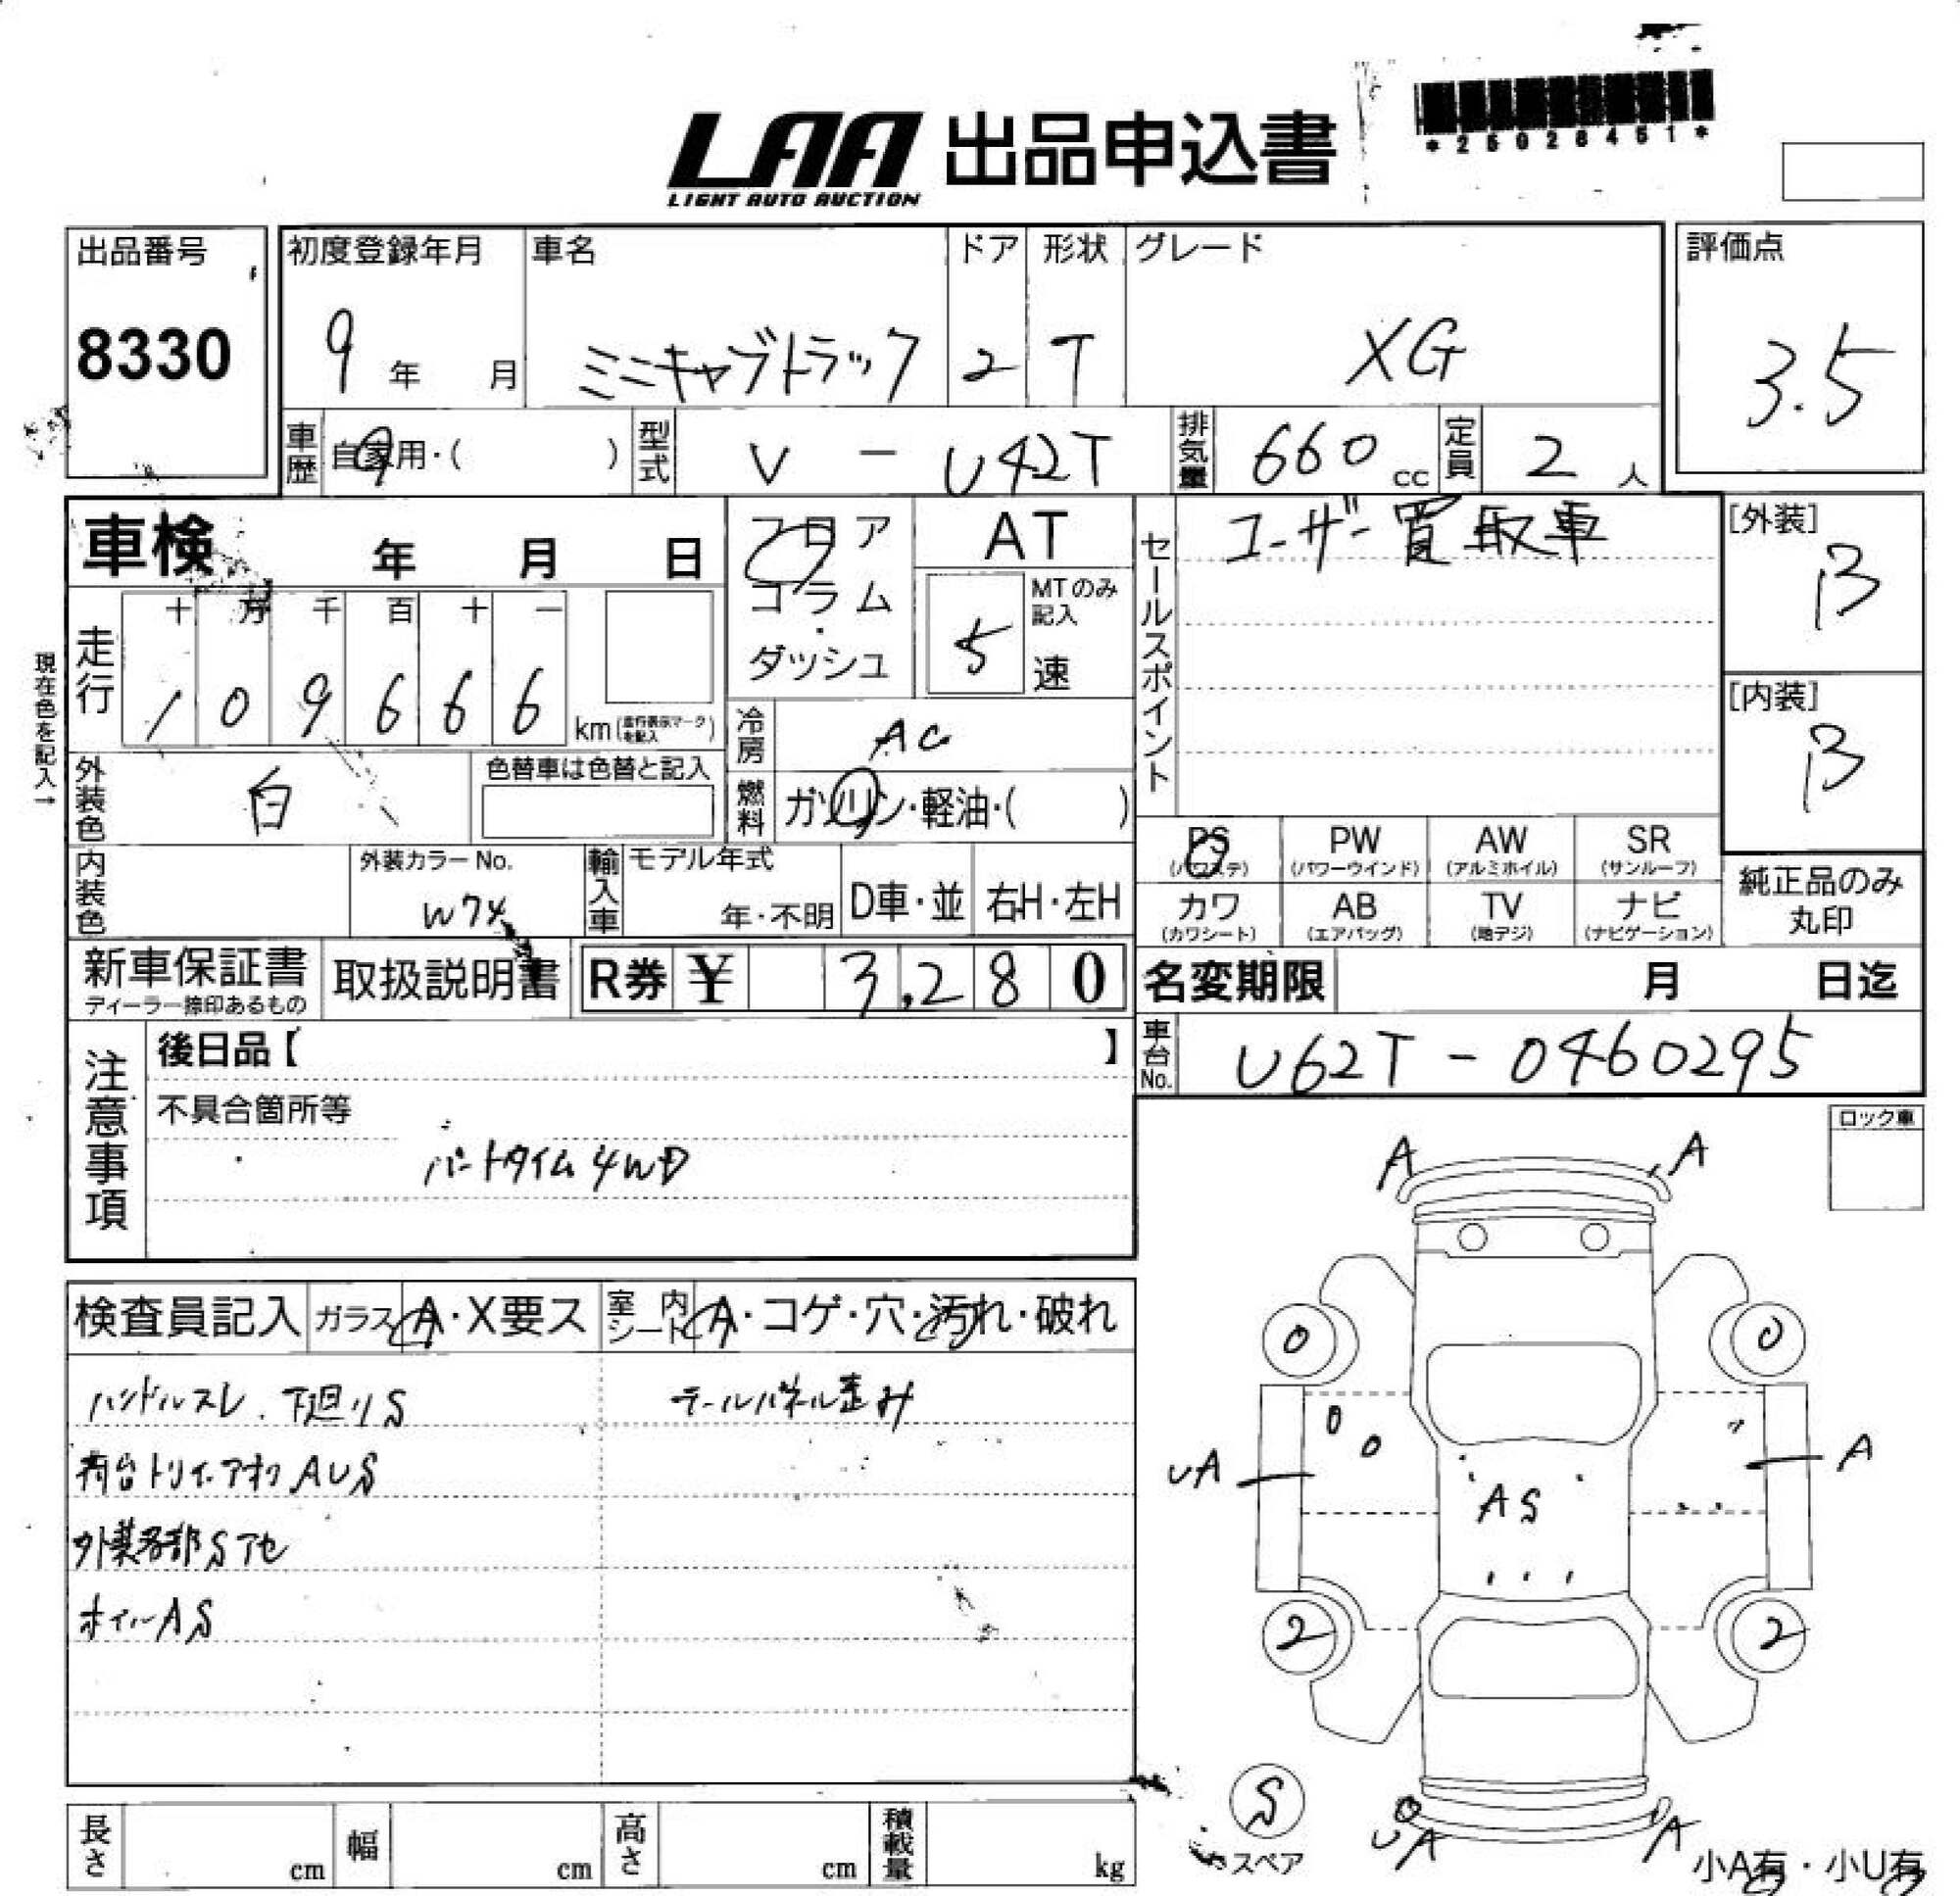 LAA 出品申込書
LIGHT AUTO AUCTION
*25028451*
出品番号
8330
初度登録年月
9 年 月
車名
ミニキャブトラック
ドア
2
形状
T
グレード
XG
評価点
3.5
車歴 自家用・( )
型式 V - U42T
排気量 660 cc
定員 2 人
車検 年 月 日
フロア
コラム
・
ダッシュ
AT
MTのみ記入
5 速
セールスポイント
ユーザー買取車
[外装]
B
[内装]
B
現在色を記入→
走行
十 万 千 百 十 一
1 0 9 6 6 6
km (走行表示マークを記入)
冷房 AC
燃料 ガソリン・軽油・( )
外装色 白
色替車は色替と記入
内装色
外装カラーNo.
W74
輸入車
モデル年式
年・不明
D車・並
右H・左H
PS (パワステ)
PW (パワーウインド)
AW (アルミホイル)
SR (サンルーフ)
カワ (カワシート)
AB (エアバッグ)
TV (地デジ)
ナビ (ナビゲーション)
純正品のみ
丸印
新車保証書
ディーラー捺印あるもの
取扱説明書
R券 ¥ 3,280
名変期限 月 日迄
車台No. U62T-0460295
注意事項
後日品【 】
不具合箇所等
パートタイム4WD
ロック車
検査員記入
ガラス A・X要ス
室内シート A・コゲ・穴・汚れ・破れ
ハンドルスレ. 下廻りS
テールパネル歪み
荷台トリイ.アオリAUS
外装各部Sアセ
ホイルAS
A A
0 0
UA A
AS
2 2
S
スペア
UA A
小A有・小U有
長さ cm
幅 cm
高さ cm
積載量 kg